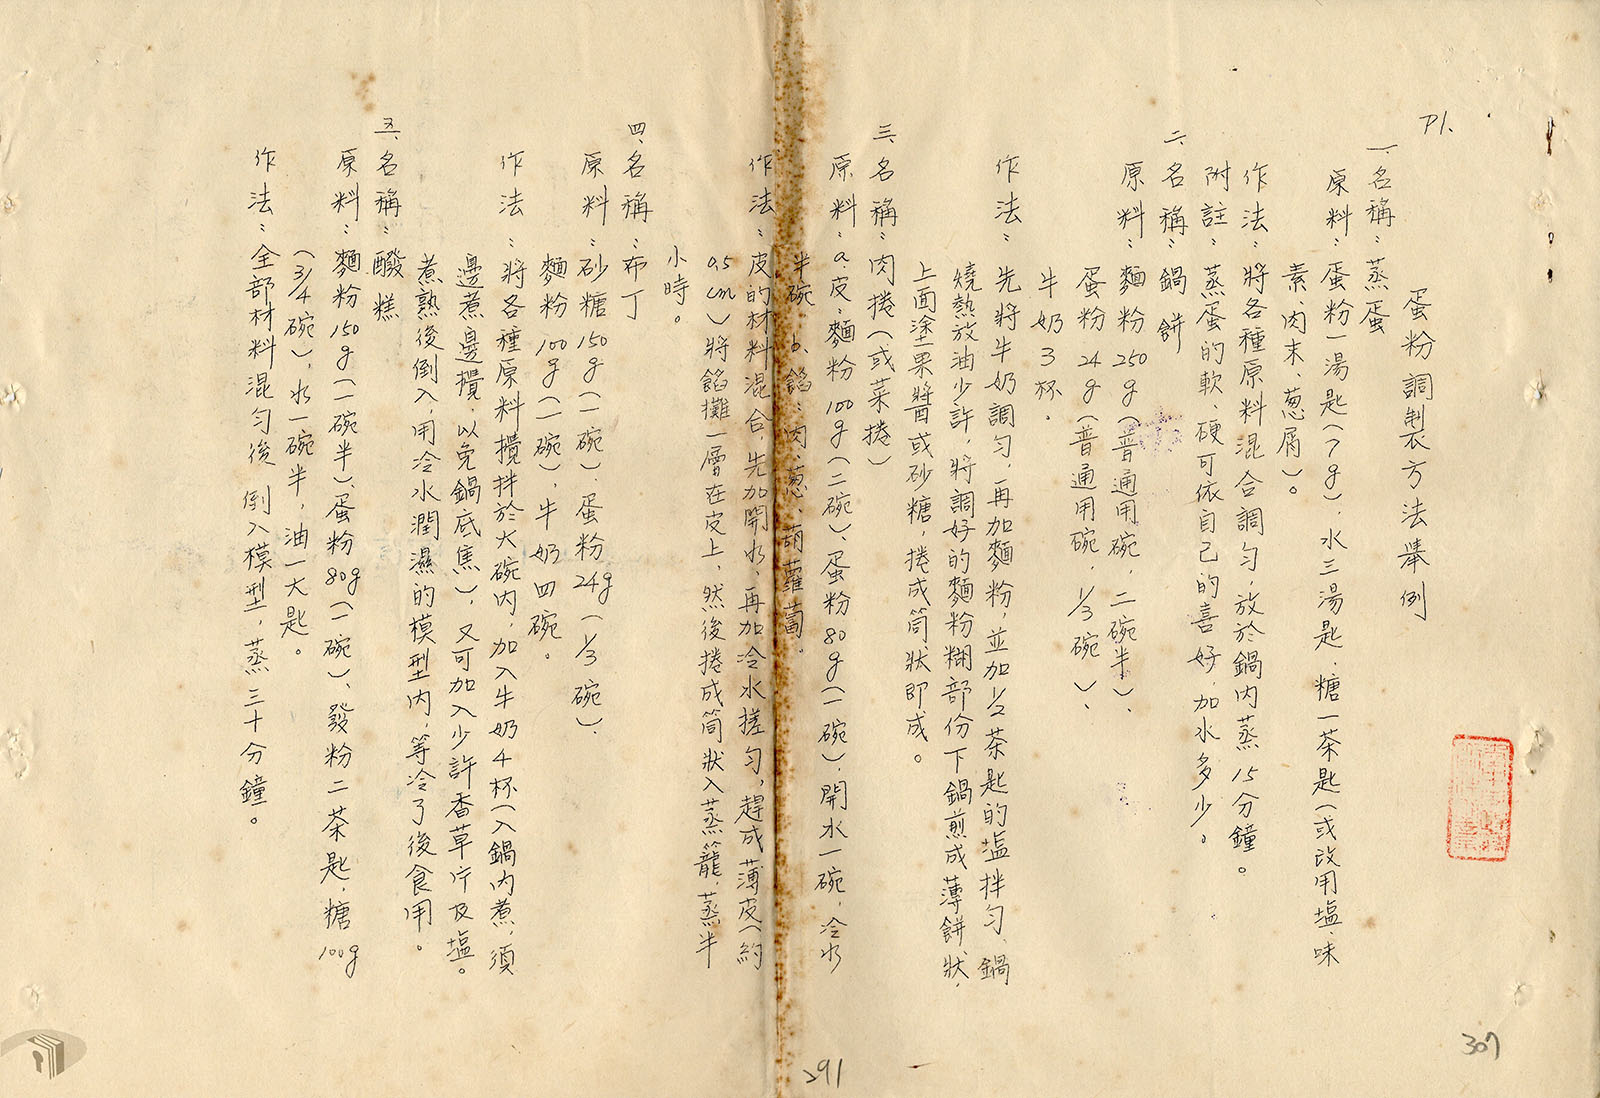 P1.
蛋粉調製方法舉例
一、名稱：蒸蛋
原料：蛋粉一湯匙（7g）、水三湯匙、糖一茶匙（或改用塩、味
素、肉末、葱屑）。
作法：將各種原料混合調勻，放於鍋內蒸15分鐘。
附註：蒸蛋的軟、硬可依自己的喜好，加水多少。
二、名稱：鍋餅
原料：麵粉250g（普通用碗，二碗半）、
蛋粉24g（普通用碗，1/3碗）、
牛奶3杯。
作法：先將牛奶調勻，再加麵粉，並加1/2茶匙的塩拌勻、鍋
燒熱放油少許，將調好的麵粉糊部份下鍋煎成薄餅狀，
上面塗果醬或砂糖，捲成筒狀即成。
三、名稱：肉捲（或菜捲）
原料：a.皮：麵粉100g（二碗）、蛋粉80g（一碗）、開水一碗，冷水
半碗 b.餡：肉、葱、葫蘿蔔。
作法：皮的材料混合，先加開水、再加冷水搓勻，趕成薄皮（約
0.5cm）將餡攤一層在皮上、然後捲成筒狀入蒸籠，蒸半
小時。
四、名稱：布丁
原料：砂糖150g（一碗）、蛋粉24g（1/3碗）、
麵粉100g（一碗），牛奶四碗。
作法：將各種原料攪拌於大碗內，加入牛奶4杯（入鍋內煮，須
邊煮邊攪，以免鍋底焦），又可加入少許香草片及塩。
煮熟後倒入，用冷水潤濕的模型內，等冷了後食用。
五、名稱：醱糕
原料：麵粉150g（一碗半）、蛋粉80g（一碗）、發粉二茶匙，糖100g
（3/4碗），水一碗半，油一大匙。
作法：全部材料混勻後倒入模型，蒸三十分鐘。
307
291